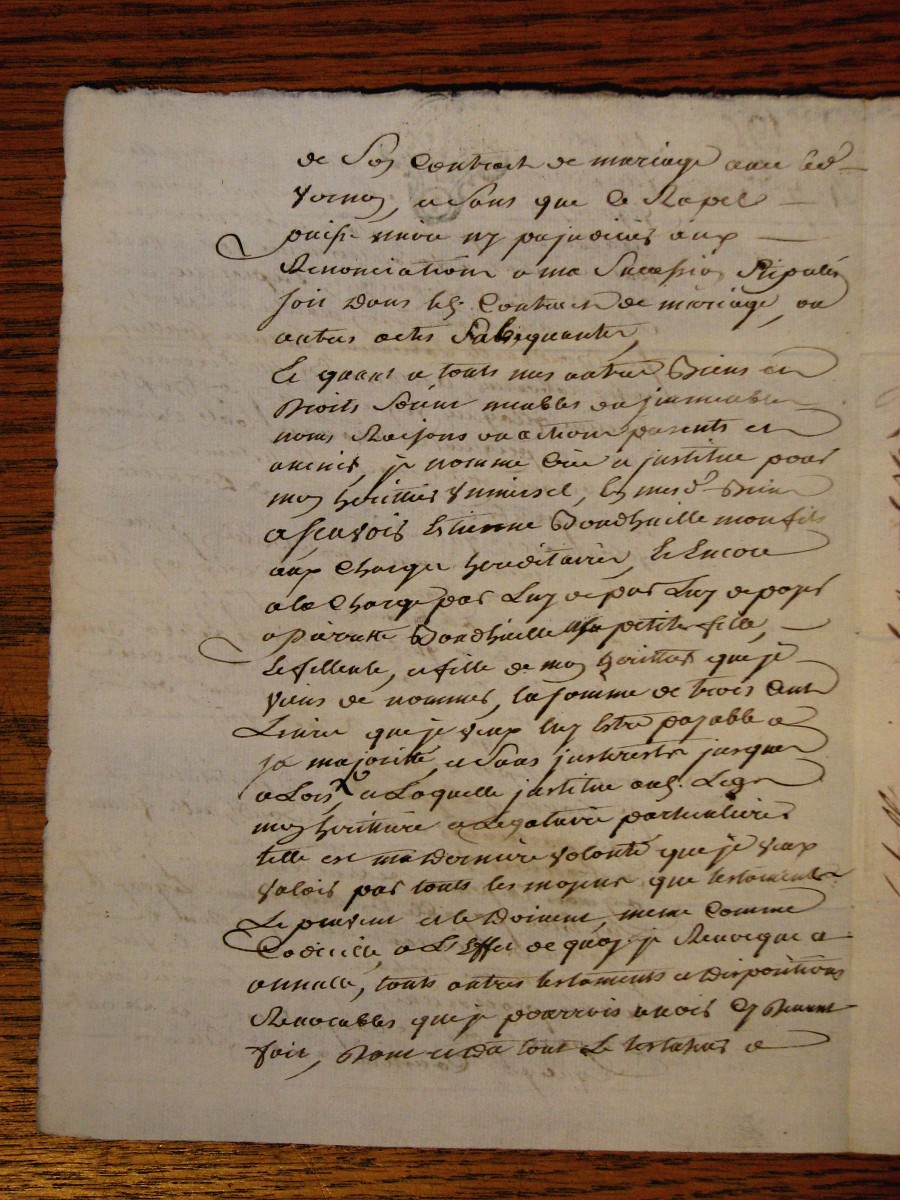 de Son Contract de mariage avec led.
Vernay, et Sans que Ce Rapel
puisse nuire ny prejudicier aux
Renonciations a ma Succession Stipulés
soit dans led. Contract de mariage, ou
autres actes Subsequents,
Et quant a touts mes autres Biens et
Droits Soient meubles ou jmmeubles
noms Raisons ou actions presents et
avenir, je nomme Crée et jnstitue pour
mon heritier Vniversel, En mesd. Biens
ascavoir Estienne Dondhuille mon fils
aux Charges hereditaires, Et Encore
a la Charge par Luy de par Luy de payer
a Pierrette Dondhuille Sa petite fille,
Se fillente, et fille de mon heritier que je
Viens de nommer, la somme de trois Cent
Livres que je Veux luy Estre payable a
Sa majorité, et Sans jnterests jusques
a Lors, et a Laquelle jnstitue aud. Legs
mon heritiere et Legataire particuliere
telle est ma derniere volonté que je Veux
valoir par touts les moyens que testaments
Le peuvent et le doivent, meme Comme
Codicille, a L'Effet de quoy je Revoque et
annulle, touts autres testaments et dispositions
Revocables que je pourrois avoir Cy Devant
fait, Dont et du tout Le testateur a